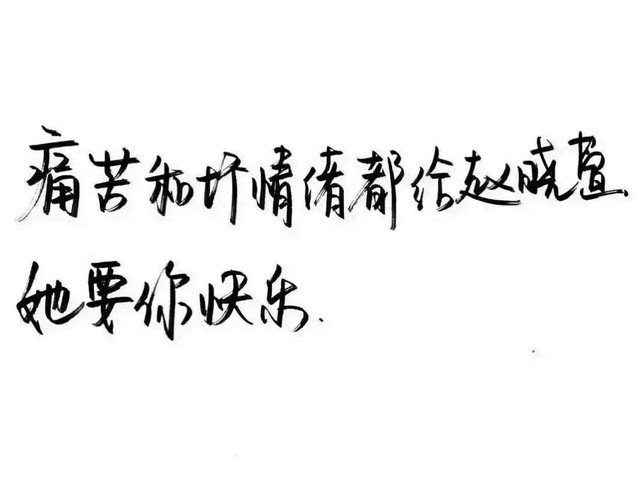 痛苦和坏情绪都给赵晓萱.
她要你快乐.